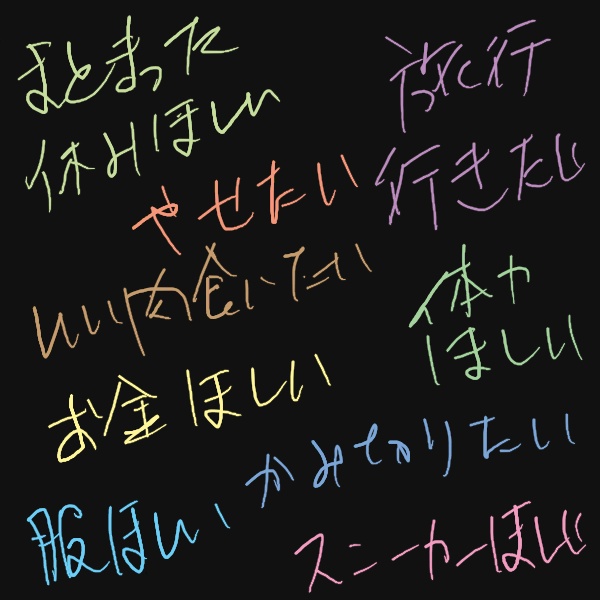 まとまった
休みほしい
旅行
行きたい
やせたい
いい肉食いたい
体力
ほしい
お金ほしい
かみ切りたい
服ほしい
スニーカーほしい